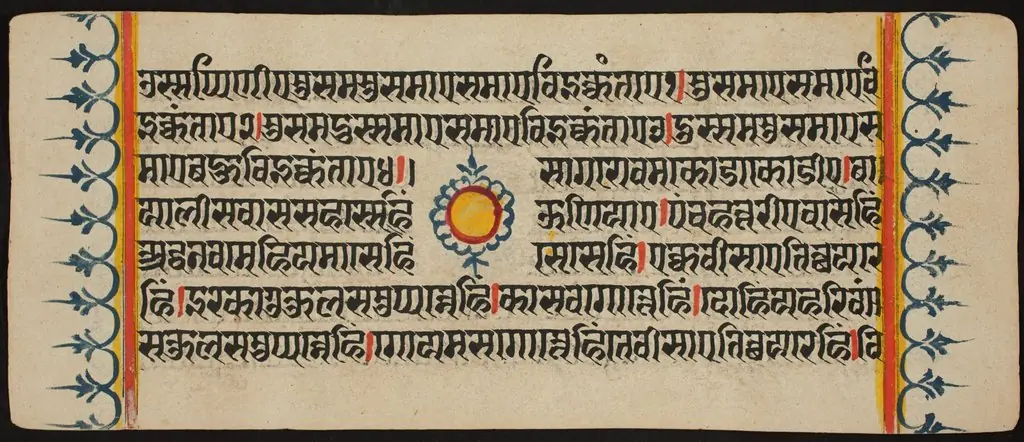 उस्सप्पिणीए सुसमसुसमाए समाए विइक्कंताए१।सुसमाए समाए वि
इक्कंताए२।सुसमदुस्समाए समाए विइक्कंताए३।दुस्समसुसमाए स
माए बहुविइक्कंताए४।। सागरोवमकोडाकोडीए।बा
यालीसवाससहस्सेहिं ऊणियाए।पंचहत्तरीए वासेहि
अद्धनवमेहि यमासेहि सेसेहिं।एक्कवीसाए तित्थयरे
हिं।इक्खागुकुलसमुप्पन्नेहिं।कासवगोत्तेहिं।दोहि य हरिवंस
सकुलसमुप्पन्नेहि।गोयमसगोत्तेहिं।तेवीसाए तित्थयरेहिं।वि